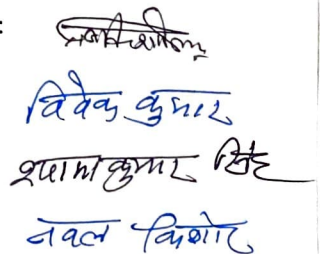 विवेक कुमार
श्याम कुमार सिंह
नवल किशोर